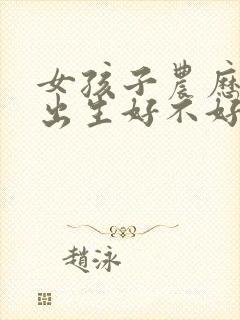 女孩子農歷
出生好不好
趙泳